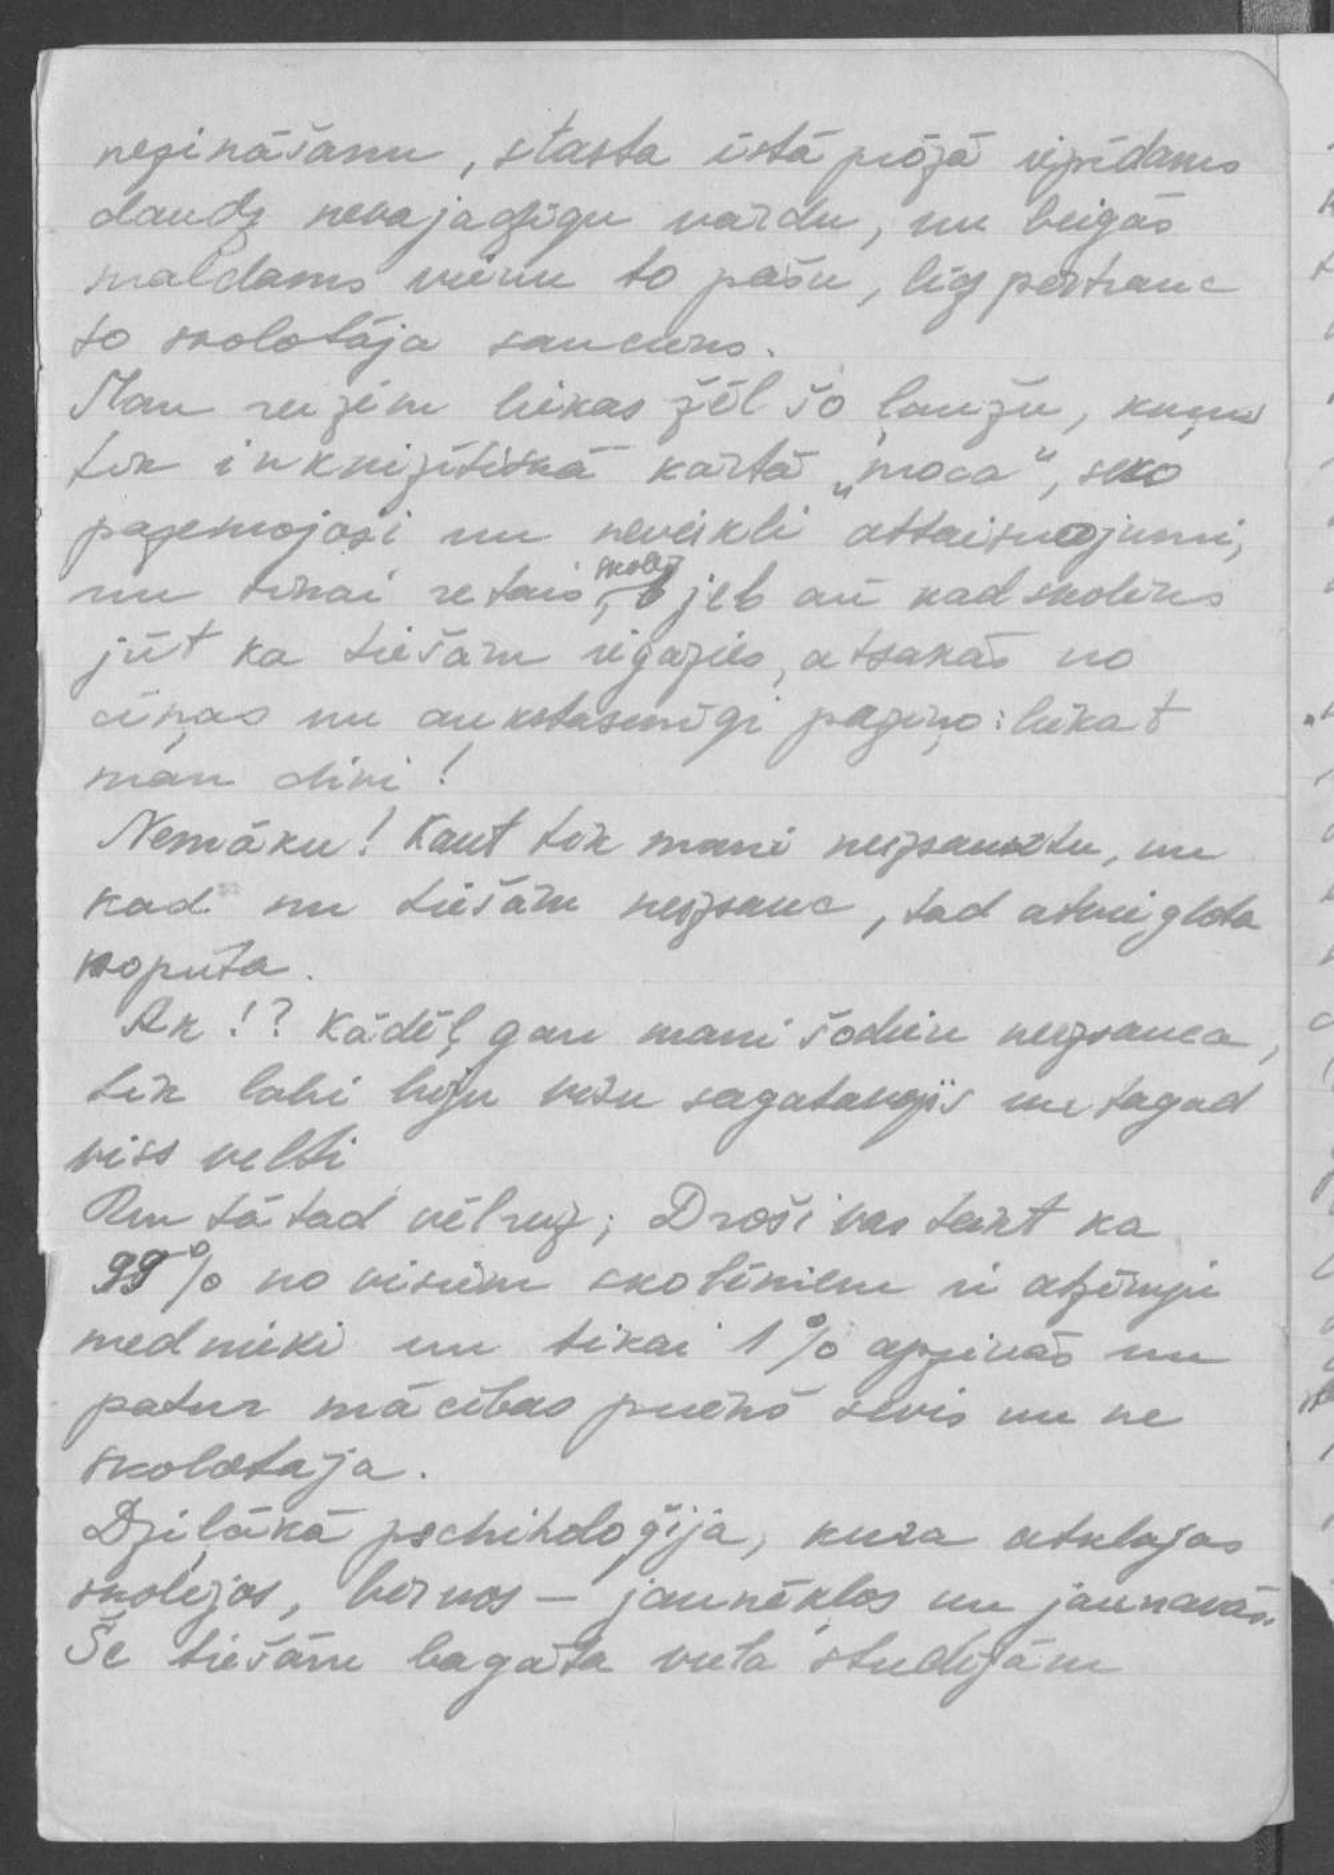 nezināšanu, stasta īstā prōzā vijrīdams
daudz nevajadzīgu vārdu, un beigās
maldams vienu to pašu, līdz pārtrauc
to skolotāja sauciens.
Man reizēm liekas žēl šo ļaužu, kuŗus
tik inkvizītiskā kārtā „moca", seko
pazemojoši un neveikli attaisnojumi,
un tikai retais, skoln jeb arī kad skolēns
jūt ka tiešām izgāzies, atsakās no
cīņas un aukstasinīgi paziņo: liekat
man divi!
Nemāku! Kaut tik mani neizsauktu, un
kad nu tiešām neizsauc, tad atviegloti
nopūta.
Ak!? Kādēļ gan mani šodien neizsauca,
tik labi biju visu sagatavojis un tagad
viss velti
Un tā tad vēlreiz; Droši var teikt ka
99% no visiem skolēniem ir atzīmju
mednieki un tikai 1% apzinās un
patur mācības priekš sevis un ne
skolotāja.
Dziļākā pschiholoģija, kura atklājas
skolējos, bērnos – jaunekļos un jaunavās.
Še tiešām bagāta vieta studijām